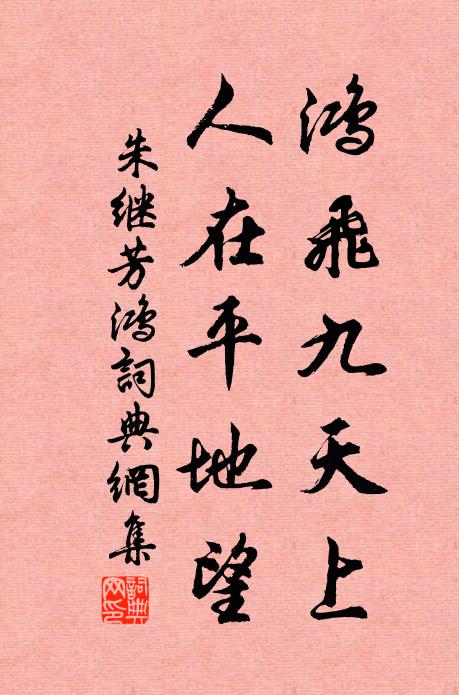 鸿飛九天上
人在平地望
朱继芳鸿詞典網集
詞典网印